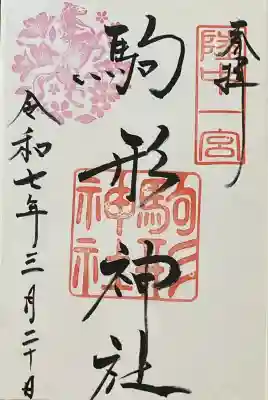 奉拝
陸中一宮
駒形神社
駒形神社
令和七年三月二十日